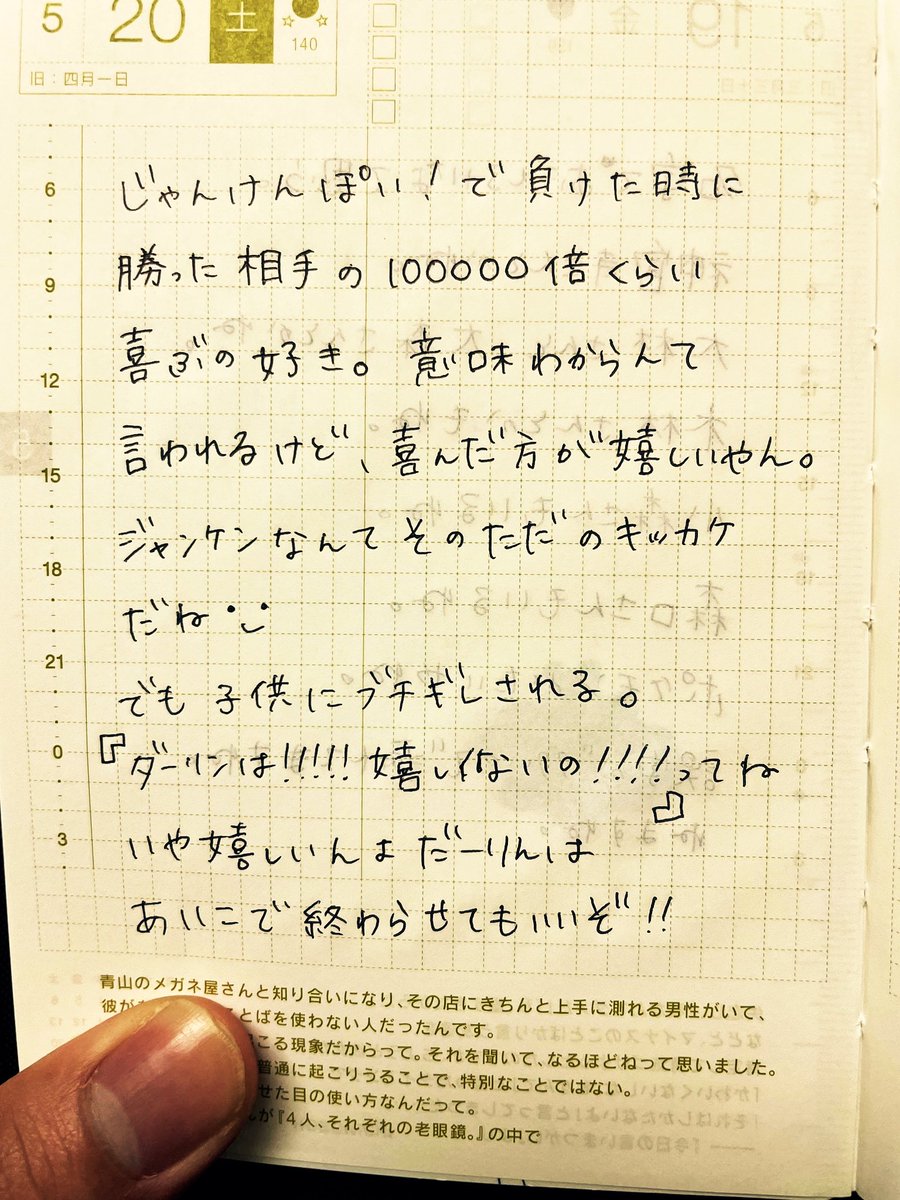 5 20 土
140
旧：四月一日
6
9
12
15
18
21
0
3
じゃんけんぽい！で負けた時に
勝った相手の100000倍くらい
喜ぶの好き。意味わからんて
言われるけど、喜んだ方が嬉しいやん。
ジャンケンなんてそのただのキッカケ
だね
でも子供にブチギレされる。
『ダーリンは!!!!!嬉しくないの!!!!ってね』
いや嬉しいんよだーりんは
あいこで終わらせてもいいぞ!!
青山のメガネ屋さんと知り合いになり、その店にきちんと上手に測れる男性がいて、
彼が
ことばを使わない人だったんです。
こる現象だからって。それを聞いて、なるほどねって思いました。
普通に起こりうることで、特別なことではない。
せた目の使い方なんだって。
が『4人、それぞれの老眼鏡。』の中で